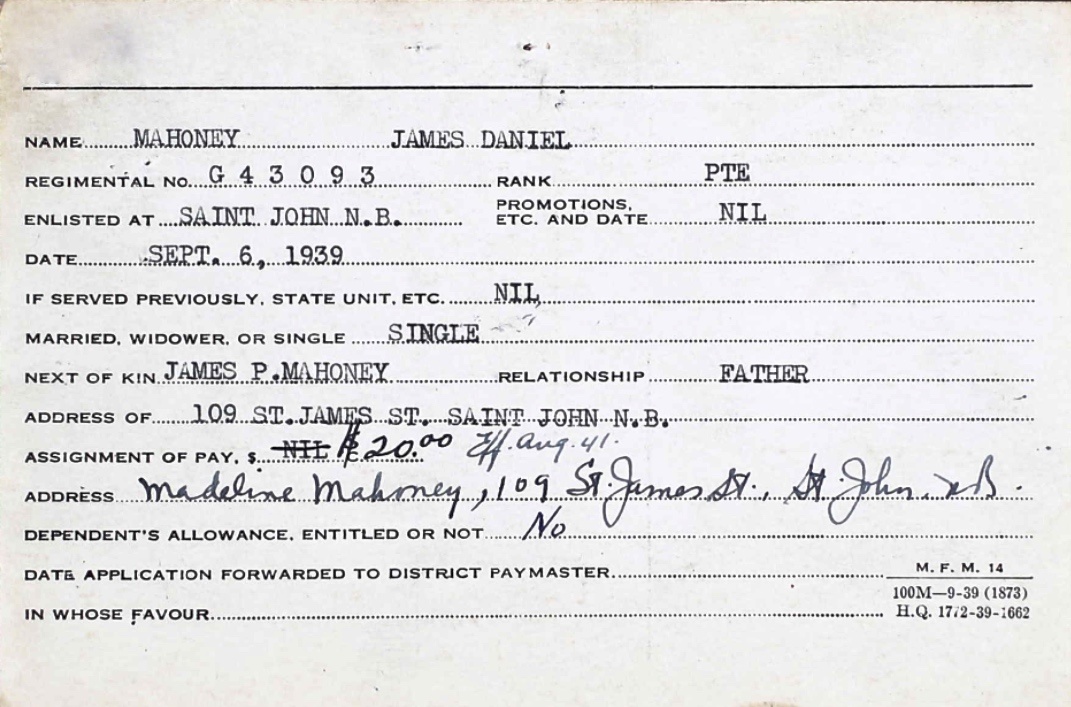 NAME MAHONEY JAMES DANIEL
REGIMENTAL No. G 4 3 0 9 3 RANK PTE
ENLISTED AT SAINT JOHN N.B. PROMOTIONS, ETC. AND DATE NIL
DATE SEPT. 6, 1939
IF SERVED PREVIOUSLY, STATE UNIT, ETC. NIL
MARRIED, WIDOWER, OR SINGLE SINGLE
NEXT OF KIN JAMES P.MAHONEY RELATIONSHIP FATHER
ADDRESS OF 109 ST.JAMES ST. SAINT JOHN N.B.
ASSIGNMENT OF PAY, $ NIL $20.00 Eff. Aug. 41.
ADDRESS Madeline Mahoney, 109 St. James St., St. John. NB.
DEPENDENT'S ALLOWANCE, ENTITLED OR NOT No
DATE APPLICATION FORWARDED TO DISTRICT PAYMASTER
M. F. M. 14
IN WHOSE FAVOUR
100M—9-39 (1873)
H.Q. 1772-39-1662